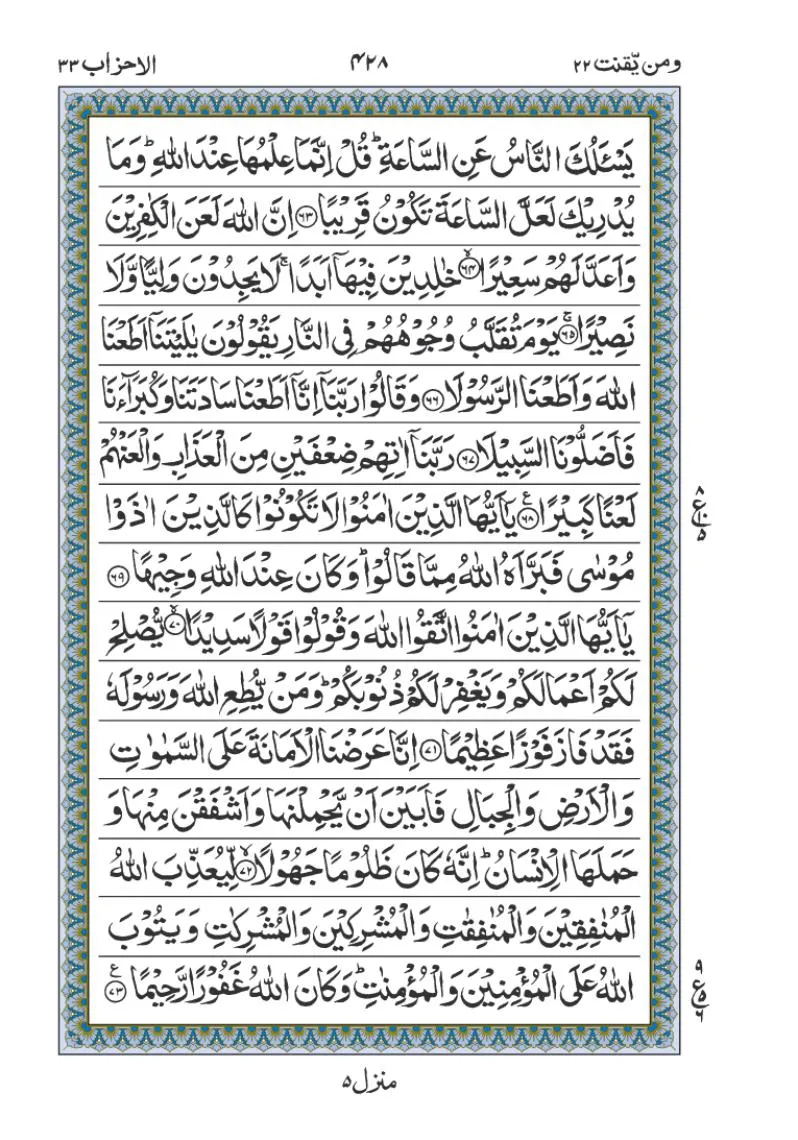 ومن يّقنت ۲۲
۴۲۸
الاحزاب ۳۳
يَسْـَٔلُكَ النَّاسُ عَنِ السَّاعَةِ ؕ قُلْ اِنَّمَا عِلْمُهَا عِنْدَ اللّٰهِ ؕ وَمَا
يُدْرِيْكَ لَعَلَّ السَّاعَةَ تَكُوْنُ قَرِيْبًا ﴿۶۳﴾ اِنَّ اللّٰهَ لَعَنَ الْكٰفِرِيْنَ
وَاَعَدَّ لَهُمْ سَعِيْرًا ۙ﴿۶۴﴾ خٰلِدِيْنَ فِيْهَاۤ اَبَدًا ۚ لَا يَجِدُوْنَ وَلِيًّا وَّلَا
نَصِيْرًا ۚ﴿۶۵﴾ يَوْمَ تُقَلَّبُ وُجُوْهُهُمْ فِى النَّارِ يَقُوْلُوْنَ يٰلَيْتَنَاۤ اَطَعْنَا
اللّٰهَ وَاَطَعْنَا الرَّسُوْلَا ﴿۶۶﴾ وَقَالُوْا رَبَّنَاۤ اِنَّاۤ اَطَعْنَا سَادَتَنَا وَكُبَرَآءَنَا
فَاَضَلُّوْنَا السَّبِيْلَا ﴿۶۷﴾ رَبَّنَاۤ اٰتِهِمْ ضِعْفَيْنِ مِنَ الْعَذَابِ وَالْعَنْهُمْ
لَعْنًا كَبِيْرًا ﴿۶۸﴾ ع يٰۤاَيُّهَا الَّذِيْنَ اٰمَنُوْا لَا تَكُوْنُوْا كَالَّذِيْنَ اٰذَوْا
۸ ع ۵
مُوْسٰى فَبَرَّاَهُ اللّٰهُ مِمَّا قَالُوْا ؕ وَكَانَ عِنْدَ اللّٰهِ وَجِيْهًا ﴿۶۹﴾
يٰۤاَيُّهَا الَّذِيْنَ اٰمَنُوا اتَّقُوا اللّٰهَ وَقُوْلُوْا قَوْلًا سَدِيْدًا ۙ﴿۷۰﴾ يُّصْلِحْ
لَكُمْ اَعْمَالَكُمْ وَيَغْفِرْ لَكُمْ ذُنُوْبَكُمْ ؕ وَمَنْ يُّطِعِ اللّٰهَ وَرَسُوْلَهٗ
فَقَدْ فَازَ فَوْزًا عَظِيْمًا ﴿۷۱﴾ اِنَّا عَرَضْنَا الْاَمَانَةَ عَلَى السَّمٰوٰتِ
وَالْاَرْضِ وَالْجِبَالِ فَاَبَيْنَ اَنْ يَّحْمِلْنَهَا وَاَشْفَقْنَ مِنْهَا وَ
حَمَلَهَا الْاِنْسَانُ ؕ اِنَّهٗ كَانَ ظَلُوْمًا جَهُوْلًا ۙ﴿۷۲﴾ لِّيُعَذِّبَ اللّٰهُ
الْمُنٰفِقِيْنَ وَالْمُنٰفِقٰتِ وَالْمُشْرِكِيْنَ وَالْمُشْرِكٰتِ وَيَتُوْبَ
اللّٰهُ عَلَى الْمُؤْمِنِيْنَ وَالْمُؤْمِنٰتِ ؕ وَكَانَ اللّٰهُ غَفُوْرًا رَّحِيْمًا ﴿۷۳﴾ ع
۹ ع ۵ ۶
منزل ۵